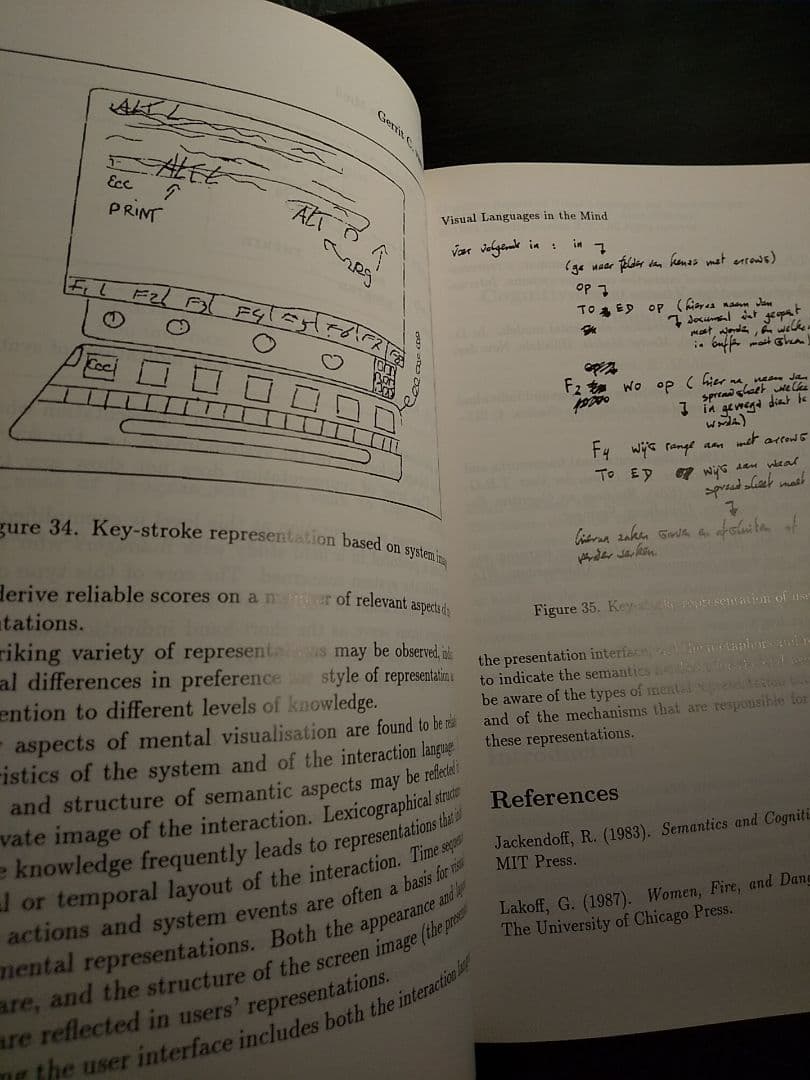 Gerrit C.
ALT L
ALT L
Ecc
PRINT
ALT
F1
F2
F3
F4
F5
F6
F7
F8
Ecc
gure 34. Key-stroke representation based on system
derive reliable scores on a of relevant aspects
tations.
riking variety of may be observed,
al differences in preference style of representation
ention to different levels of knowledge.
aspects of mental visualisation are found to be
istics of the system and of the interaction language.
and structure of semantic aspects may be reflected
vate image of the interaction. Lexicographical
e knowledge frequently leads to representations that
l or temporal layout of the interaction. Time
actions and system events are often a basis for
mental representations. Both the appearance and
are, and the structure of the screen image (the
are reflected in users' representations.
the user interface includes both the interaction
Visual Languages in the Mind
voor volgende in : in
(ga naar met arrows)
op
TO ED OP (hierna naam van
document dat geopent
moet worden, en welke
in buffer moet staan)
F2 WO op (hierna naam van
spreadsheet welke
in gevoegd dient te
worden)
F4 wijs range aan met arrows
TO ED op wijs aan waar
spreadsheet moet
hierna zaken en afsluiten of
verder werken.
Figure 35. representation of
the presentation interface,
to indicate the semantics
be aware of the types of mental
and of the mechanisms that are responsible for
these representations.
References
Jackendoff, R. (1983). Semantics and Cogniti
MIT Press.
Lakoff, G. (1987). Women, Fire, and Dang
The University of Chicago Press.